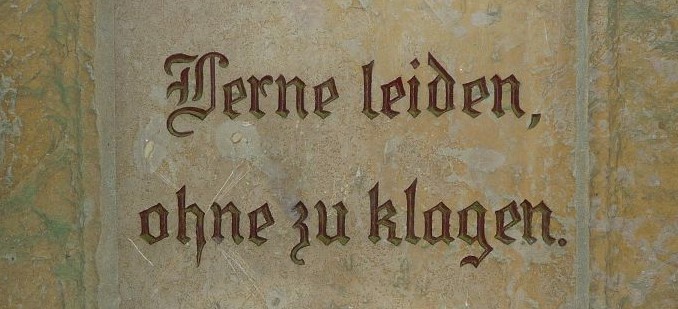 Lerne leiden,
ohne zu klagen.